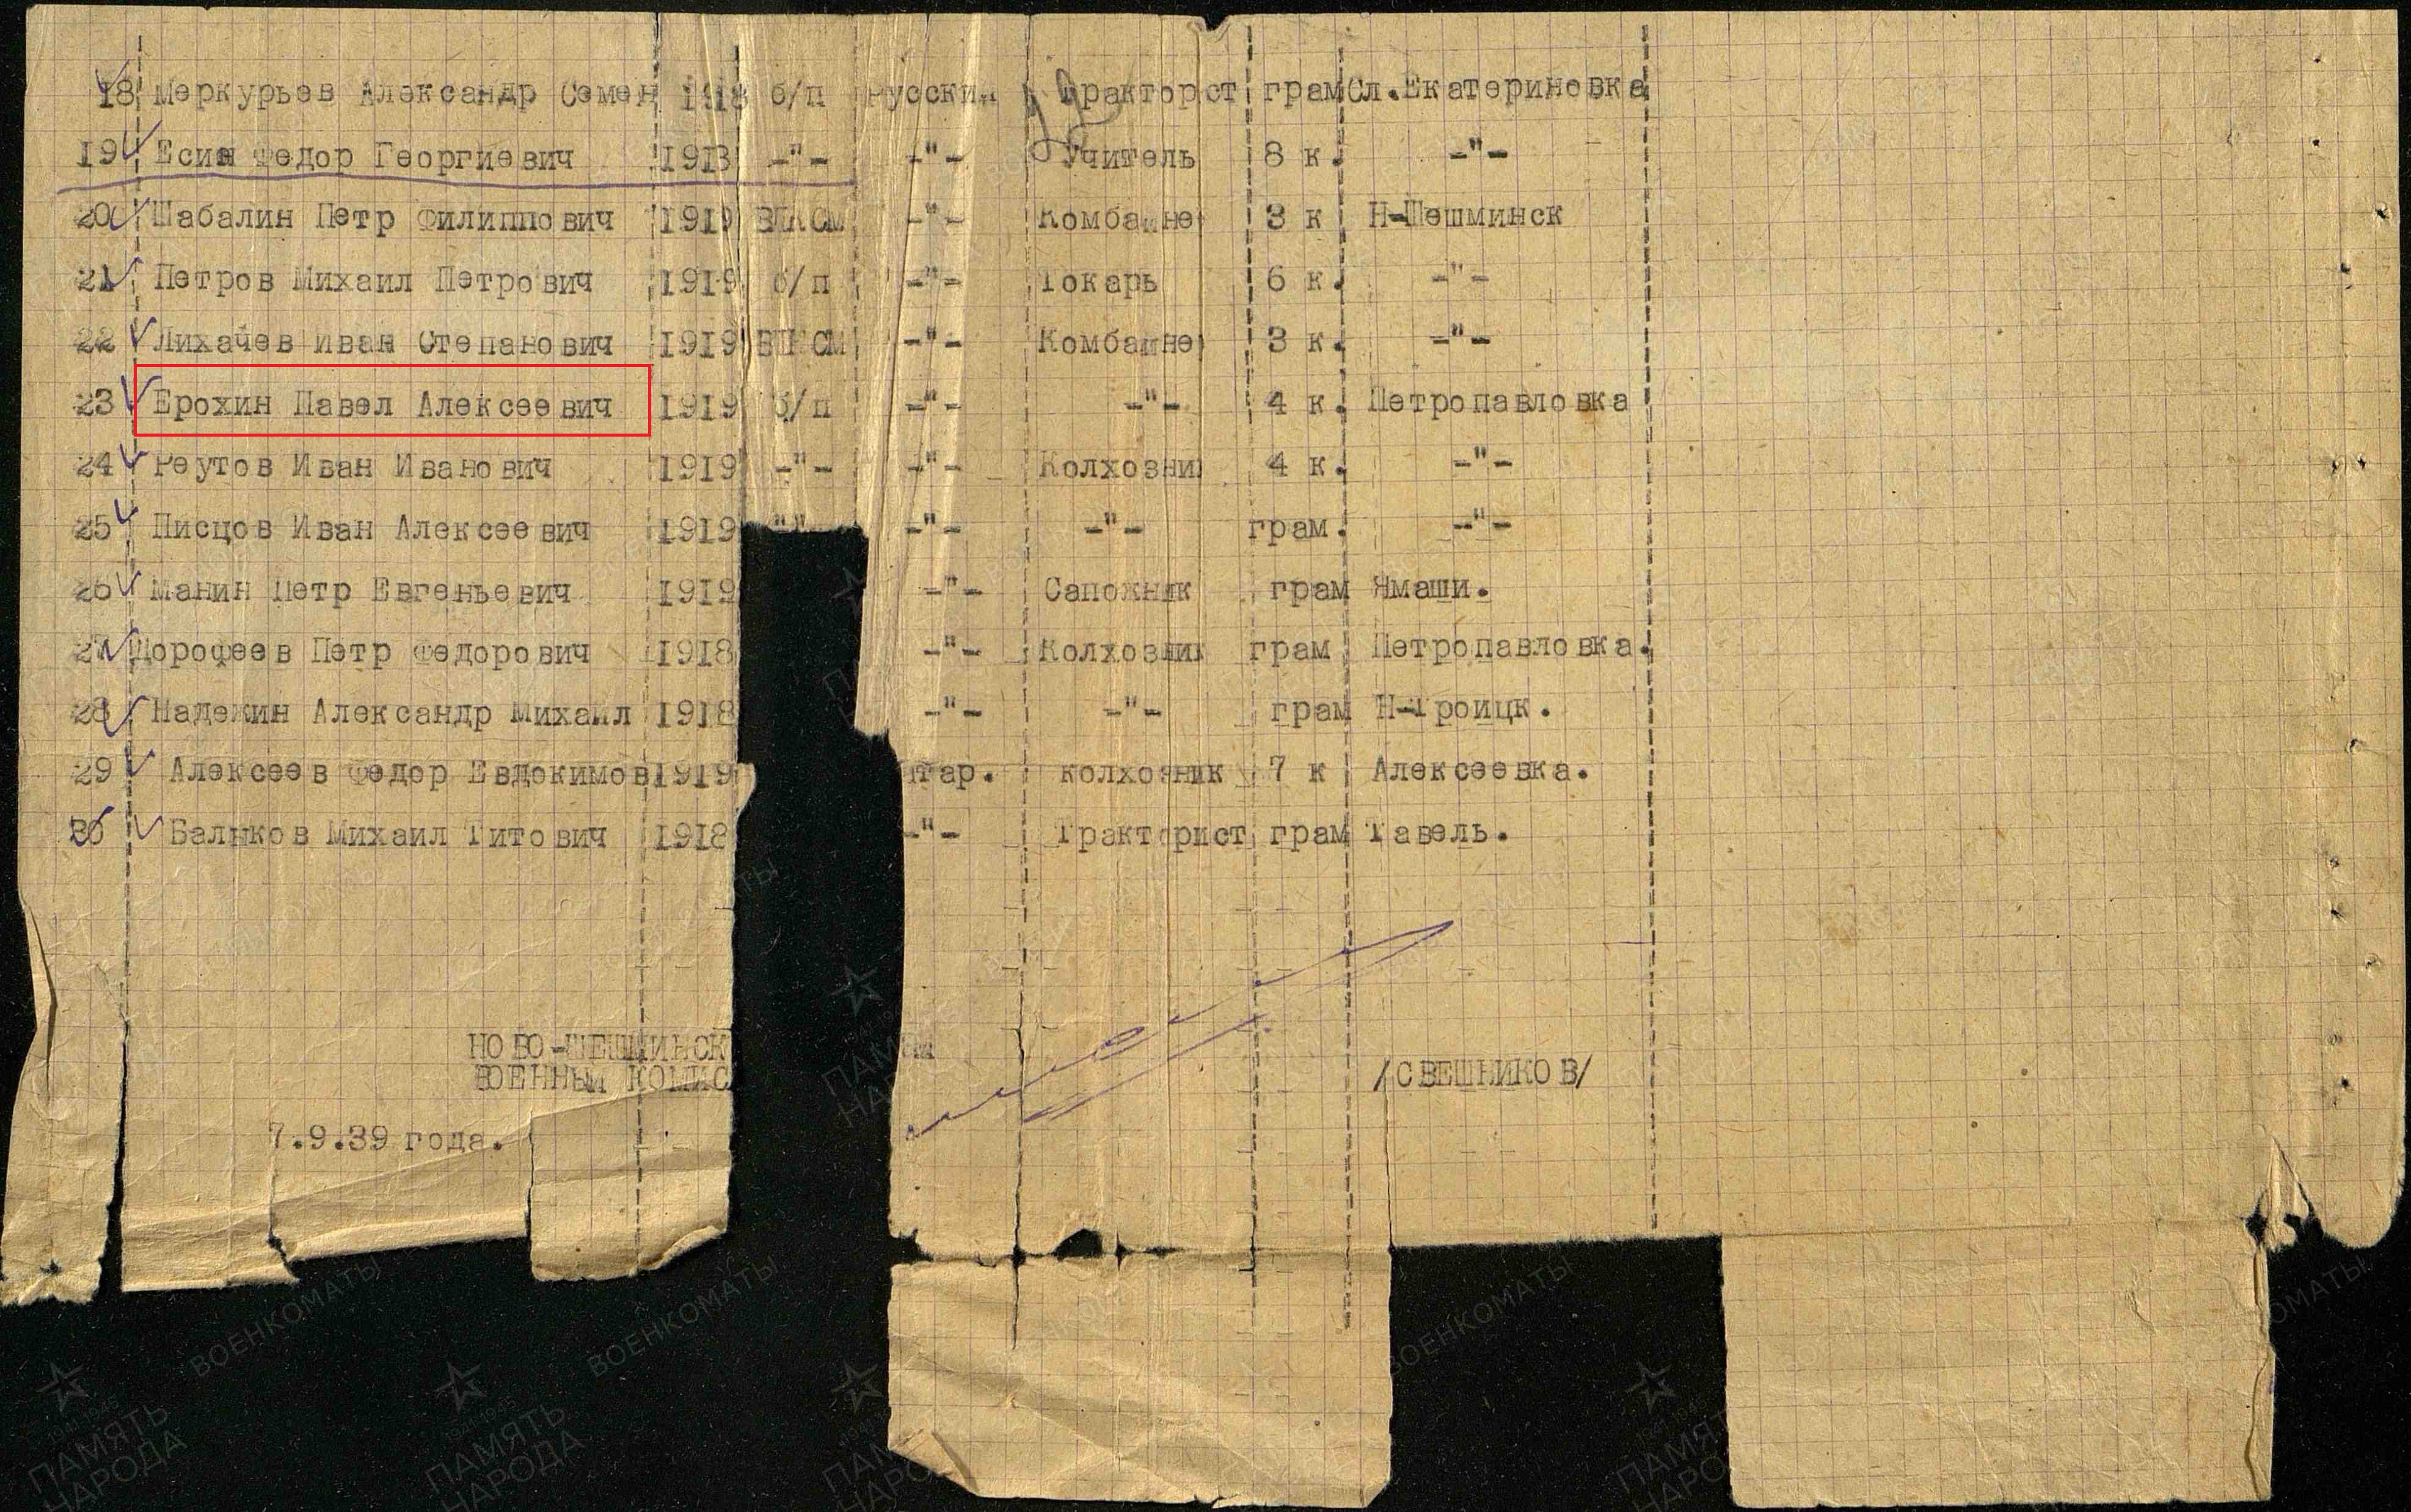 18 Меркурьев Александр Семен 1918 б/п Русский Тракторист грам Сл.Екатериновка
19 Есин Федор Георгиевич 1913 -"- -"- Учитель 8 к. -"-
20 Шабалин Петр Филиппович 1919 ВЛКСМ -"- Комбайне 3 к Н-Шешминск
21 Петров Михаил Петрович 1919 б/п -"- Токарь 6 к. -"-
22 Лихачев Иван Степанович 1919 ВЛКСМ -"- Комбайне 3 к. -"-
23 Ерохин Павел Алексеевич 1919 б/п -"- -"- 4 к. Петропавловка
24 Реутов Иван Иванович 1919 -"- -"- Колхозни 4 к. -"-
25 Писцов Иван Алексеевич 1919 "" -"- -"- грам. -"-
26 Манин Петр Евгеньевич 1919 -"- Сапожник грам Ямаши.
27 Дорофеев Петр Федорович 1918 -"- Колхозник грам Петропавловка.
28 Надежин Александр Михаил 1918 -"- -"- грам Н-Троицк.
29 Алексеев Федор Евдокимов 1919 тар. колхозник 7 к Алексеевка.
30 Балыков Михаил Титович 1918 -"- Тракторист грам Тавель.
НОВО-ШЕШМИНСК
ВОЕННЫЙ КОМИС /СВЕШНИКОВ/
7.9.39 года.
ВОЕНКОМАТЫ ВОЕНКОМАТЫ ВОЕНКОМАТЫ
1941-1945 1941-1945
ПАМЯТЬ НАРОДА ПАМЯТЬ НАРОДА